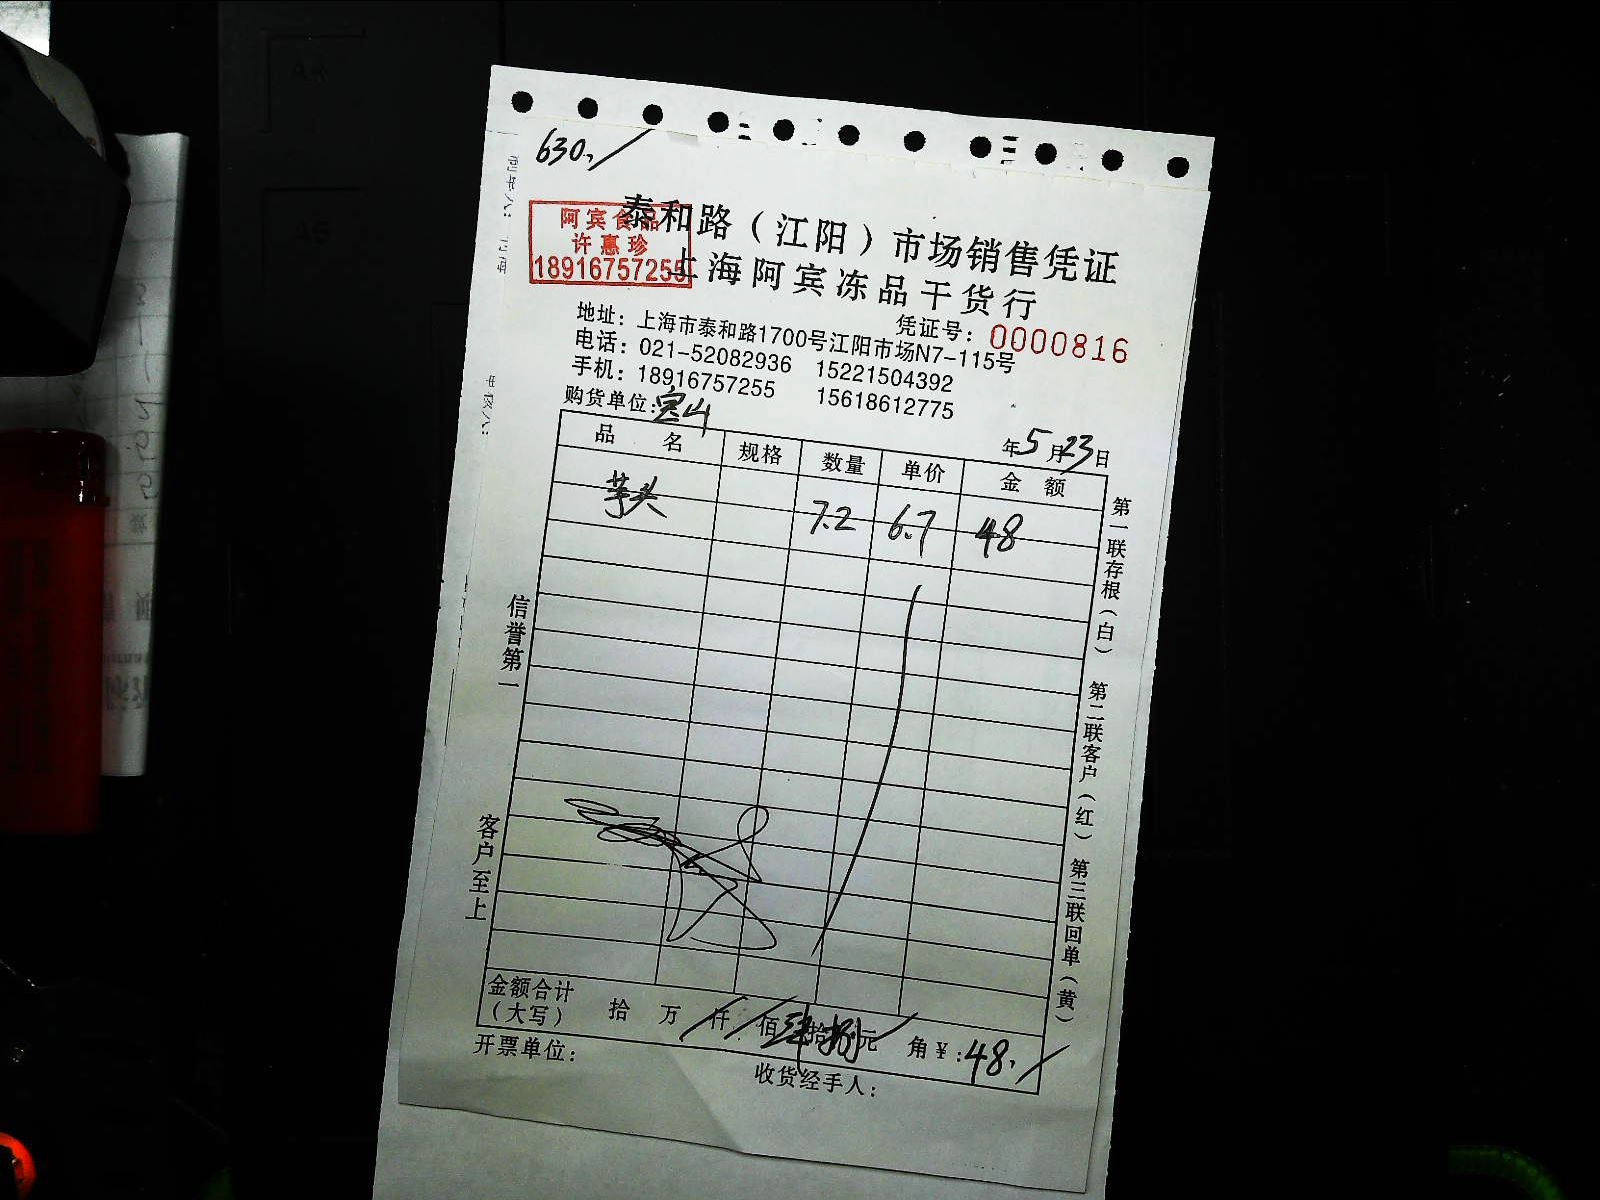 630.
泰和路（江阳）市场销售凭证
阿宾食品
许惠珍
18916757255
上海阿宾冻品干货行
凭证号：0000816
地址：上海市泰和路1700号江阳市场N7-115号
电话：021-52082936 15221504392
手机：18916757255 15618612775
购货单位：宝山
年5月23日
品名 规格 数量 单价 金额
芋头 7.2 6.7 48
信誉第一
客户至上
第一联存根（白）
第二联客户（红）
第三联回单（黄）
金额合计
（大写） 拾 万 仟 佰 肆拾捌元 角 ￥:48.
开票单位：
收货经手人：